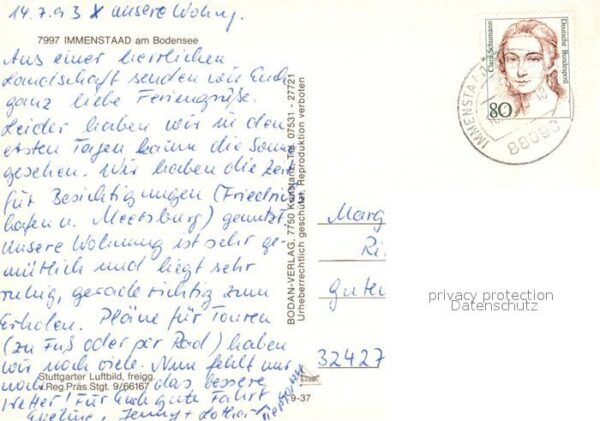 14.7.93 X unsere Wohng.
7997 IMMENSTAAD am Bodensee
Aus einer herrlichen
Landschaft senden wir Euch
ganz liebe Feriengrüße.
Leider haben wir in den
ersten Tagen kaum die Sonne
gesehen. Wir haben die Zeit
für Besichtigungen (Friedrichs-
hafen u. Meersburg) genutzt.
Unsere Wohnung ist sehr ge-
mütlich und liegt sehr
ruhig, gerade richtig zum
Erholen. Pläne für Touren
(zu Fuß oder per Rad) haben
wir noch viele. Nun fehlt nur
noch das bessere
Wetter! Für Euch gute Fahrt
Eveline, Jenny + Lothar
Stuttgarter Luftbild, freigg.
Reg.Präs.Stgt. 9/66167
BODAN-VERLAG, 7750 Konstanz, Tel. 07531 - 27721
Urheberrechtlich geschützt. Reproduktion verboten
9-37
Clara Schumann
Deutsche Bundespost
80
IMMENSTAAD
88090
Marg
Ri
Guten
32427
privacy protection
Datenschutz